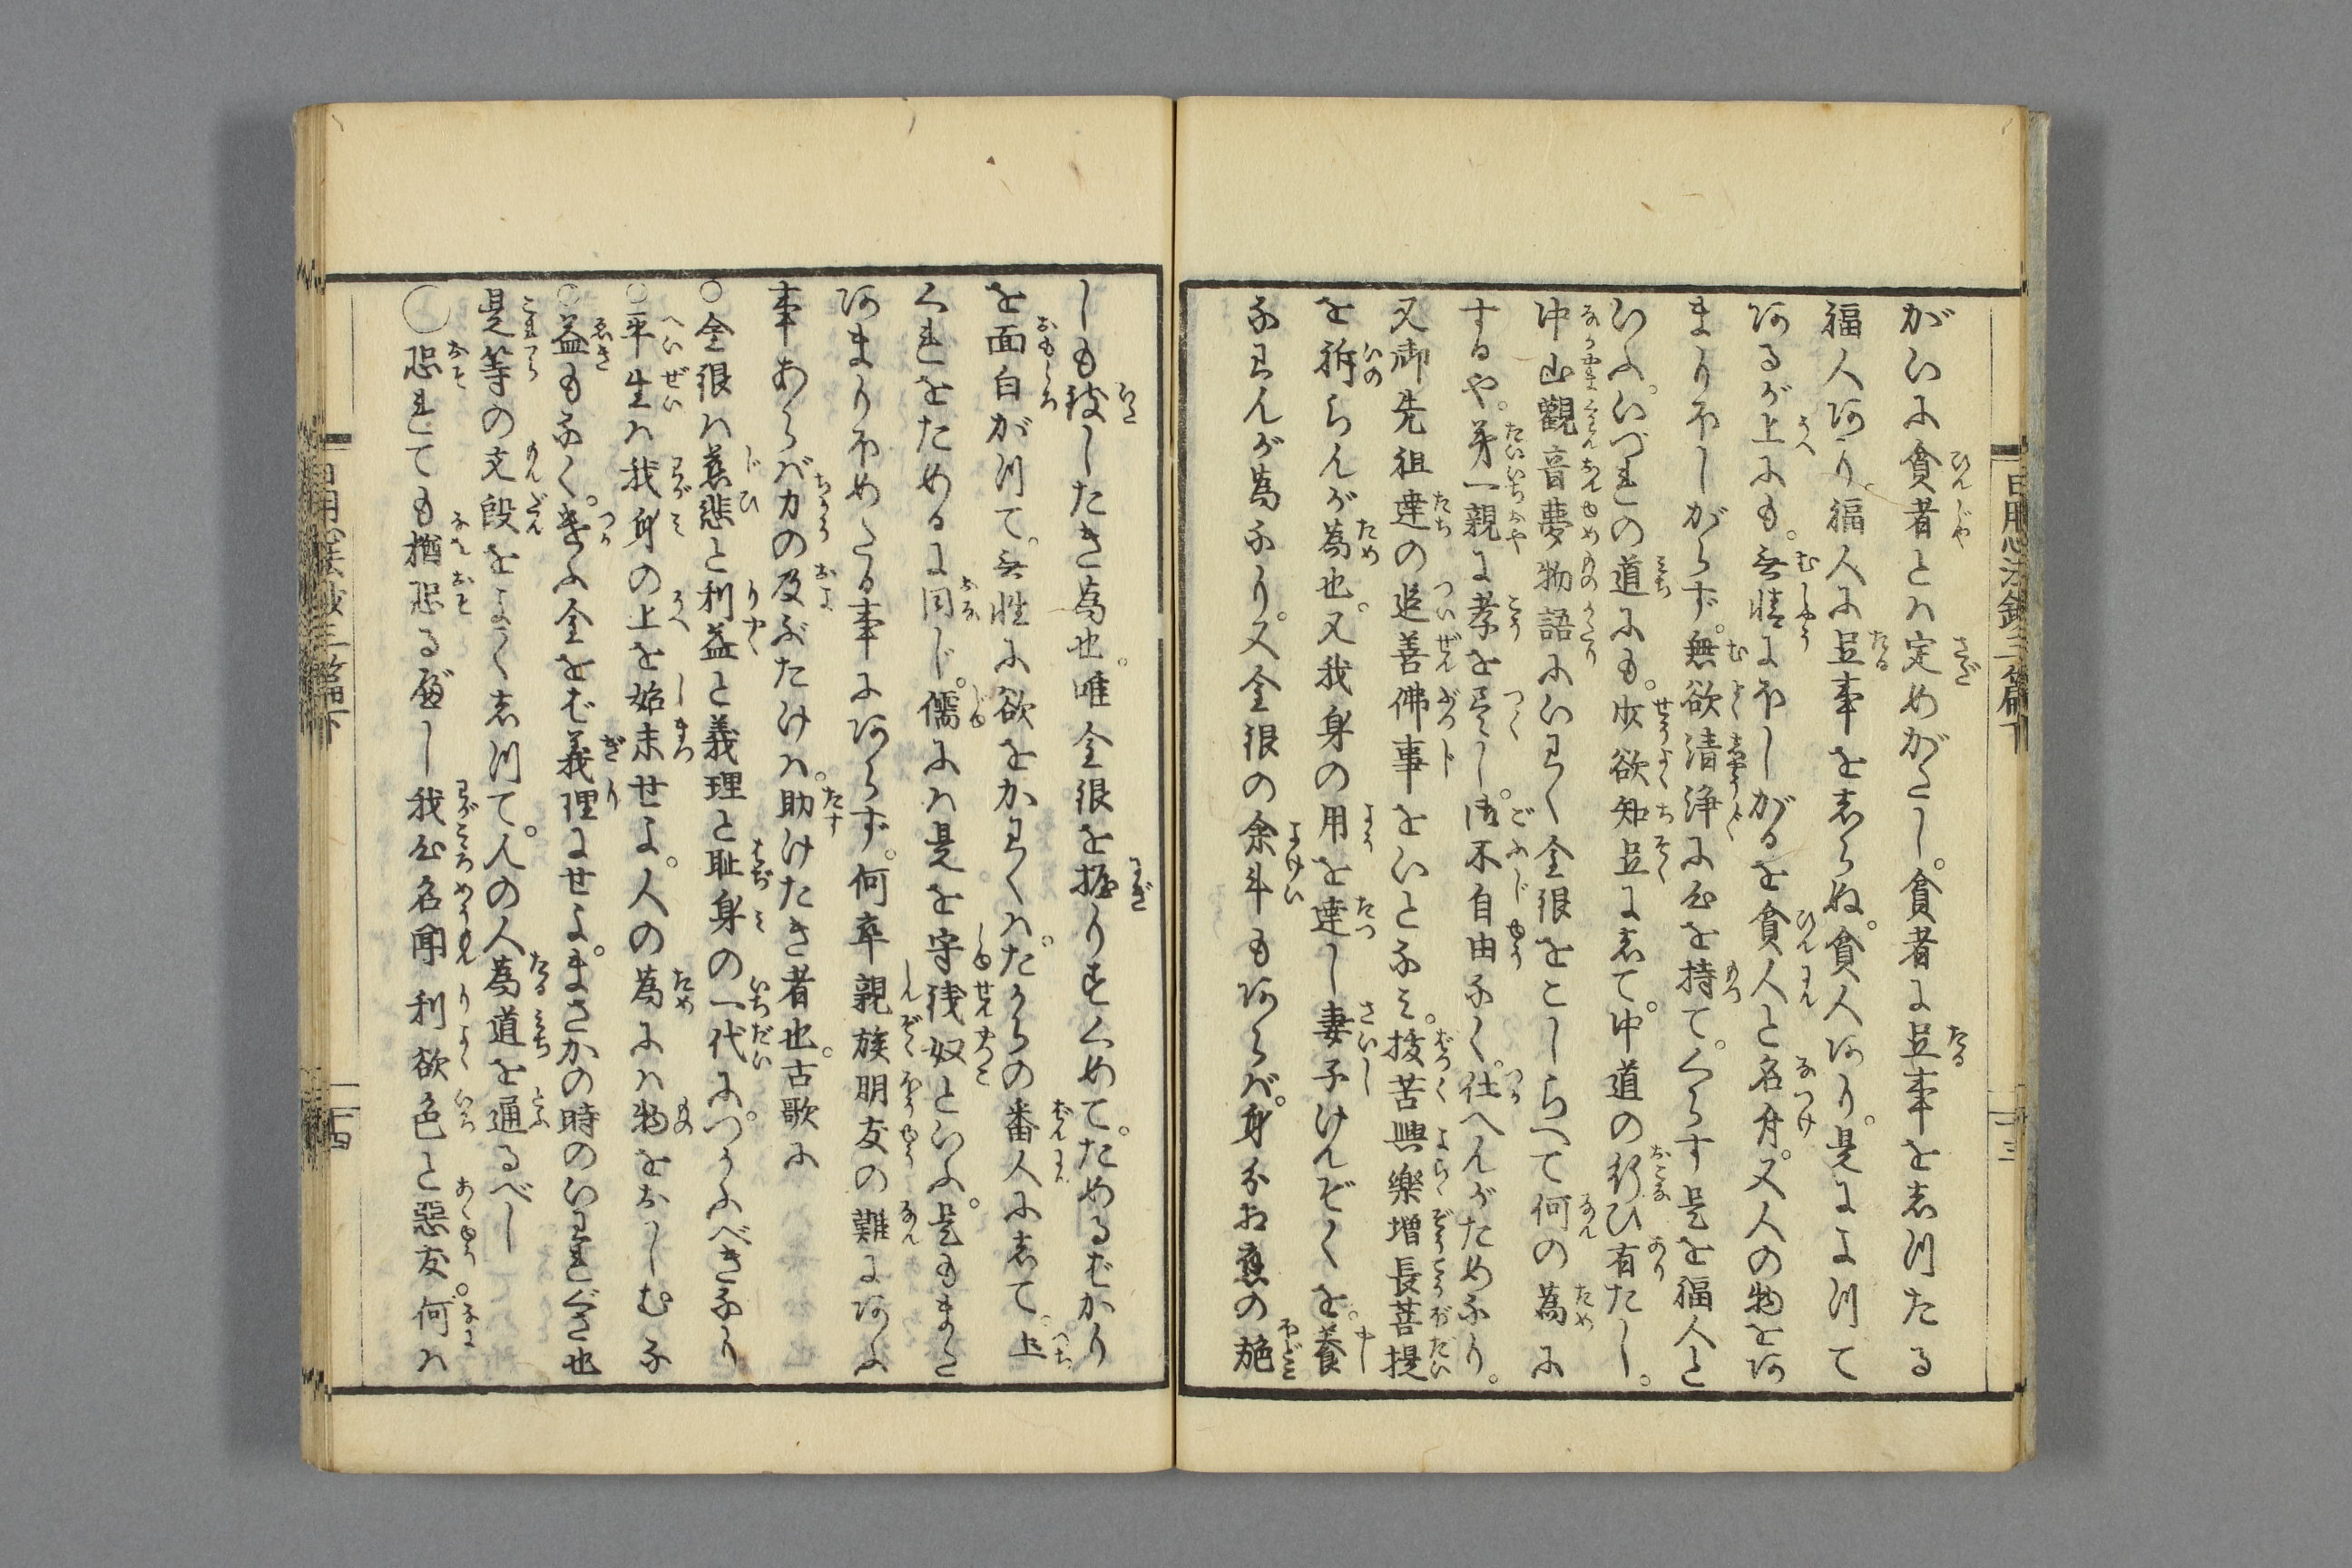 がいに貧者とハ定めがたし。貧者に足事を志つたる
福人あり。福人に足事を志らぬ。貧人あり。是によつて
あるが上にも。無性にほしがるを貧人と名付。又人の物をあ
まりほしがらず。無欲清浄に心を持て。くらす是を福人と
いふ。いづれの道にも。少欲知足に志て。中道の行ひ有たし。
中山觀音夢物語にいわく金銀をこしらへて何の為に
するや。第一親に孝を尽し。御不自由なく。仕へんがためなり。
又御先祖達の追善佛事をいとなミ。抜苦與樂増長菩提
を祈らんが為也。又我身の用を達し妻子けんぞくを。養
なわんが為なり。又金銀の余斗もあらバ。身分相應の施
しも致したき為也。唯金銀を握りすくめて。ためるばかり
を面白がつて。無性に欲をかわくハ。たからの番人に志て。土
くれをためるに同じ。儒にハ是を守銭奴といふ。是もまた
あまりほめたる事にあらず。何卒親族朋友の難にあふ
事あらバ力の及ぶたけハ。助けたき者也。古歌に
○金銀ハ慈悲と利益と義理と耻身の一代に。つかふべきなり
○平生ハ我身の上を始末せよ。人の為にハ物をおしむな
○益もなく。きらふ金をば義理にせよ。まさかの時のいわれぐさ也
是等の文段をよく志つて。人の人為道を通るべし
○恐れても猶恐るべし我心名聞利欲色と惡友。何ハ
日用心法鈔三篇下
十三
日用心法鈔三篇下
十四